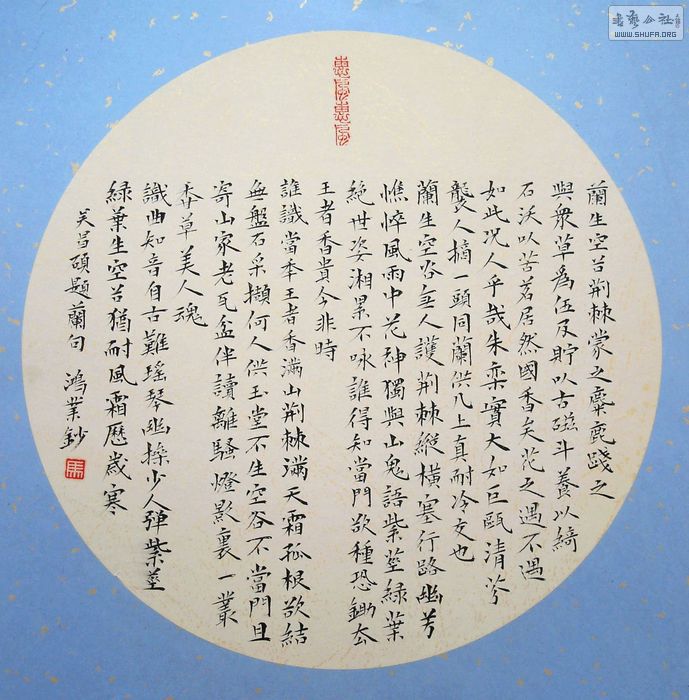 蘭生空谷荆棘蒙之麋鹿踐之
與衆草爲伍及貯以古磁斗養以綺
石沃以苦茗居然國香矣花之遇不遇
如此况人乎哉朱欒實大如巨甌清芬
襲人摘一頭同蘭供几上真耐冷友也
蘭生空谷無人護荆棘縱横塞行路幽芳
憔悴風雨中花神獨與山鬼語紫莖綠葉
絶世姿湘纍不咏誰得知當門欲種恐鋤去
王者香貴今非時
誰識當年王者香滿山荆棘滿天霜孤根欲結
無盤石采擷何人供玉堂不生空谷不當門且
寄山家老瓦盆伴讀離騷燈影裏一叢
香草美人魂
識曲知音自古難瑶琴幽操少人彈紫莖
綠葉生空谷猶耐風霜歷歲寒
吴昌碩題蘭句 鴻業鈔
書藝公社
WWW.SHUFA.ORG